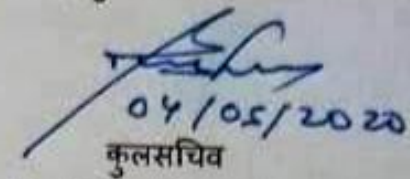 04/05/2020
कुलसचिव